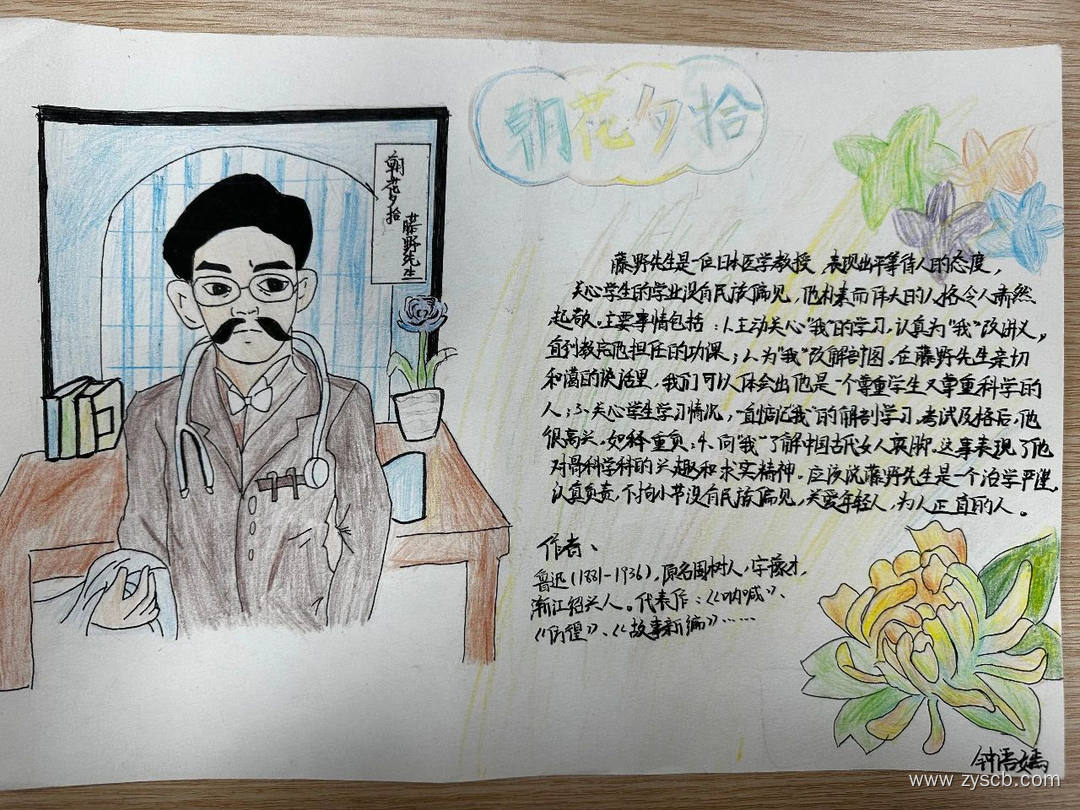 朝花夕拾
朝花夕拾
藤野先生
藤野先生是一位日本医学教授 表现出平等待人的态度，
关心学生的学业没有民族偏见，他朴素而伟大的人格令人肃然
起敬。主要事情包括：1、主动关心"我"的学习，认真为"我"改讲义，
直到教完他担任的功课；2、为"我"改解剖图。在藤野先生亲切
和蔼的快话里，我们可以体会出他是一个尊重学生又尊重科学的
人；3、关心学生学习情况，一直惦记"我"的解剖学习，考试及格后，他
很高兴，如释重负；4、向"我"了解中国古代女人裹脚。这事表现了他
对骨科学科的兴趣和求实精神。应该说藤野先生是一个治学严谨，
认真负责，不拍小节没有民族偏见，关爱年轻人，为人正直的人。
作者、
鲁迅(1881-1936)，原名周树人，字豫才，
浙江绍兴人。代表作：《呐喊》、
《彷徨》、《故事新编》……
www.zyscb.com